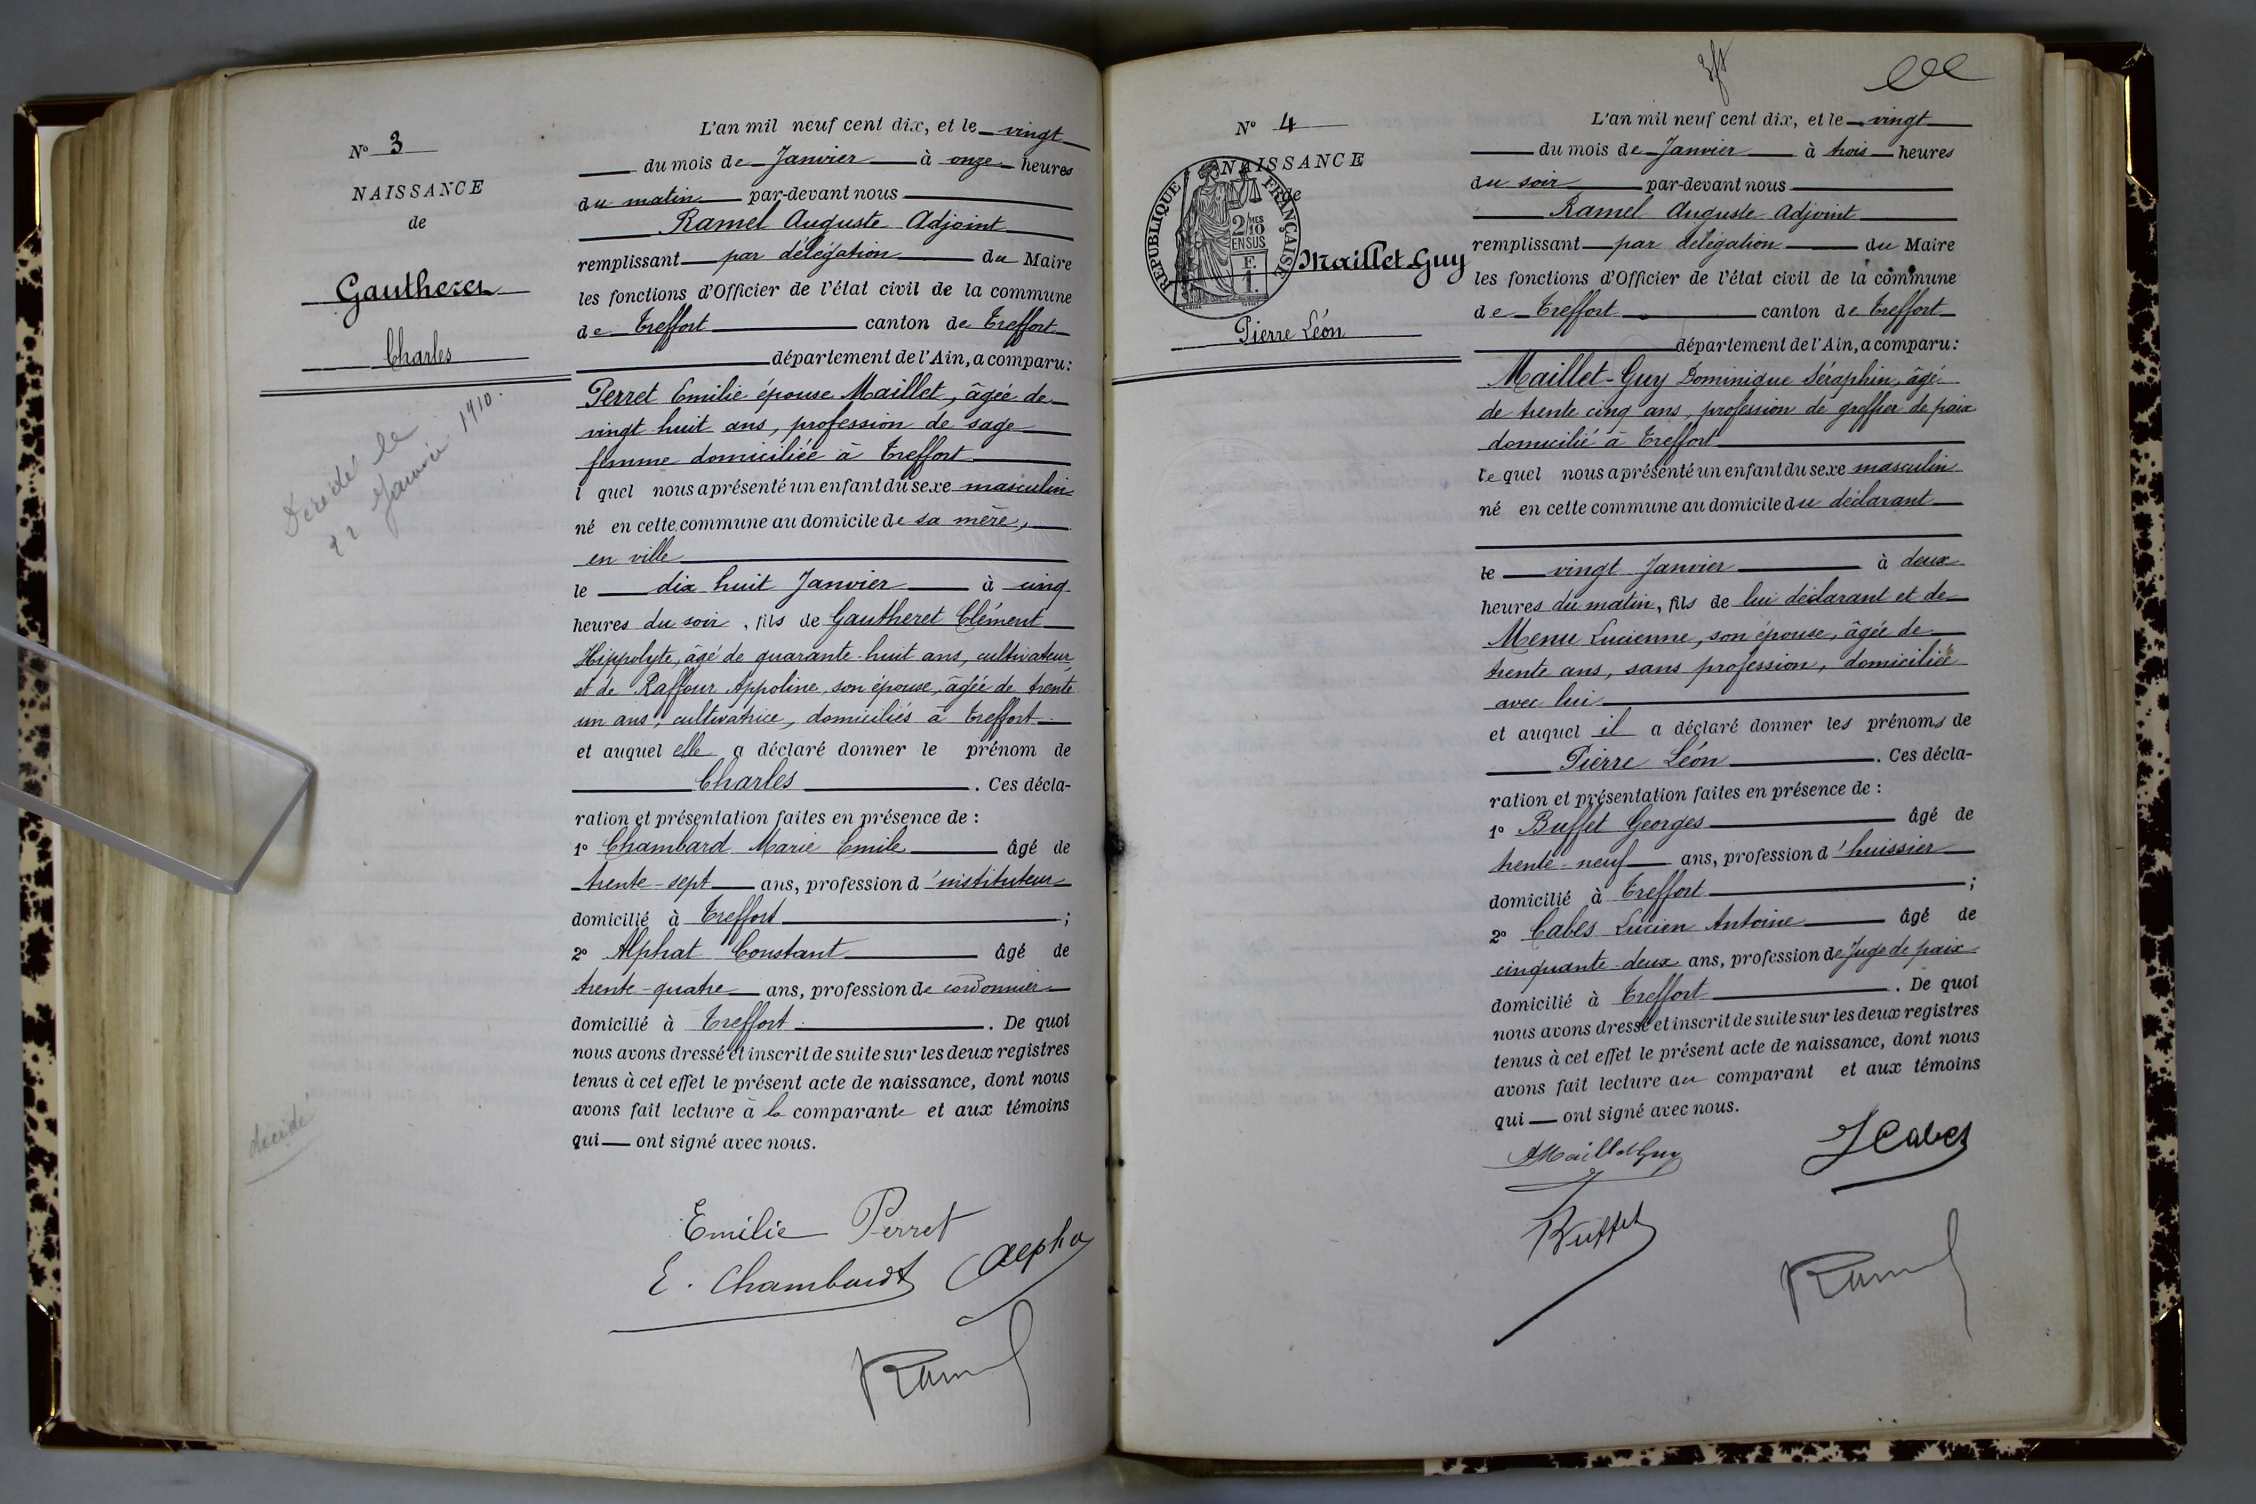 N° 3
NAISSANCE
de
Gautheret
Charles
Décédé le
22 Janvier 1910.
décédé
L'an mil neuf cent dix, et le vingt
du mois de Janvier à onze heures
du matin par-devant nous
Ramel Auguste Adjoint
remplissant par délégation du Maire
les fonctions d'Officier de l'état civil de la commune
de Treffort canton de Treffort
département de l'Ain, a comparu :
Perret Emilie épouse Maillet, âgée de
vingt huit ans, profession de sage
femme domiciliée à Treffort
l quel nous a présenté un enfant du sexe masculin
né en cette commune au domicile de sa mère,
en ville
le dix huit Janvier à cinq
heures du soir, fils de Gautheret Clément
Hippolyte, âgé de quarante-huit ans, cultivateur,
et de Raffour Appoline, son épouse, âgée de trente
un ans, cultivatrice, domiciliés à Treffort
et auquel elle a déclaré donner le prénom de
Charles. Ces décla-
ration et présentation faites en présence de :
1° Chambard Marie Emile âgé de
trente-sept ans, profession d'instituteur
domicilié à Treffort ;
2° Alphat Constant âgé de
trente-quatre ans, profession de cordonnier
domicilié à Treffort. De quoi
nous avons dressé et inscrit de suite sur les deux registres
tenus à cet effet le présent acte de naissance, dont nous
avons fait lecture à la comparante et aux témoins
qui ont signé avec nous.
Emilie Perret
E. Chambard Alpha
Ramel
N° 4
NAISSANCE
de
RÉPUBLIQUE FRANÇAISE
2/MES
10
EN SUS
F.
1.
Maillet-Guy
Pierre Léon
L'an mil neuf cent dix, et le vingt
du mois de Janvier à trois heures
du soir par-devant nous
Ramel Auguste Adjoint
remplissant par délégation du Maire
les fonctions d'Officier de l'état civil de la commune
de Treffort canton de Treffort
département de l'Ain, a comparu :
Maillet-Guy Dominique Séraphin, âgé
de trente cinq ans, profession de greffier de paix
domicilié à Treffort
lequel nous a présenté un enfant du sexe masculin
né en cette commune au domicile du déclarant
le vingt Janvier à deux
heures du matin, fils de lui déclarant et de
Menu Lucienne, son épouse, âgée de
trente ans, sans profession, domiciliée
avec lui
et auquel il a déclaré donner les prénoms de
Pierre Léon. Ces décla-
ration et présentation faites en présence de :
1° Buffet Georges âgé de
trente-neuf ans, profession d'huissier
domicilié à Treffort ;
2° Cabes Lucien Antoine âgé de
cinquante-deux ans, profession de Juge de paix
domicilié à Treffort. De quoi
nous avons dressé et inscrit de suite sur les deux registres
tenus à cet effet le présent acte de naissance, dont nous
avons fait lecture au comparant et aux témoins
qui ont signé avec nous.
Maillet Guy Cabes
Buffet
Ramel